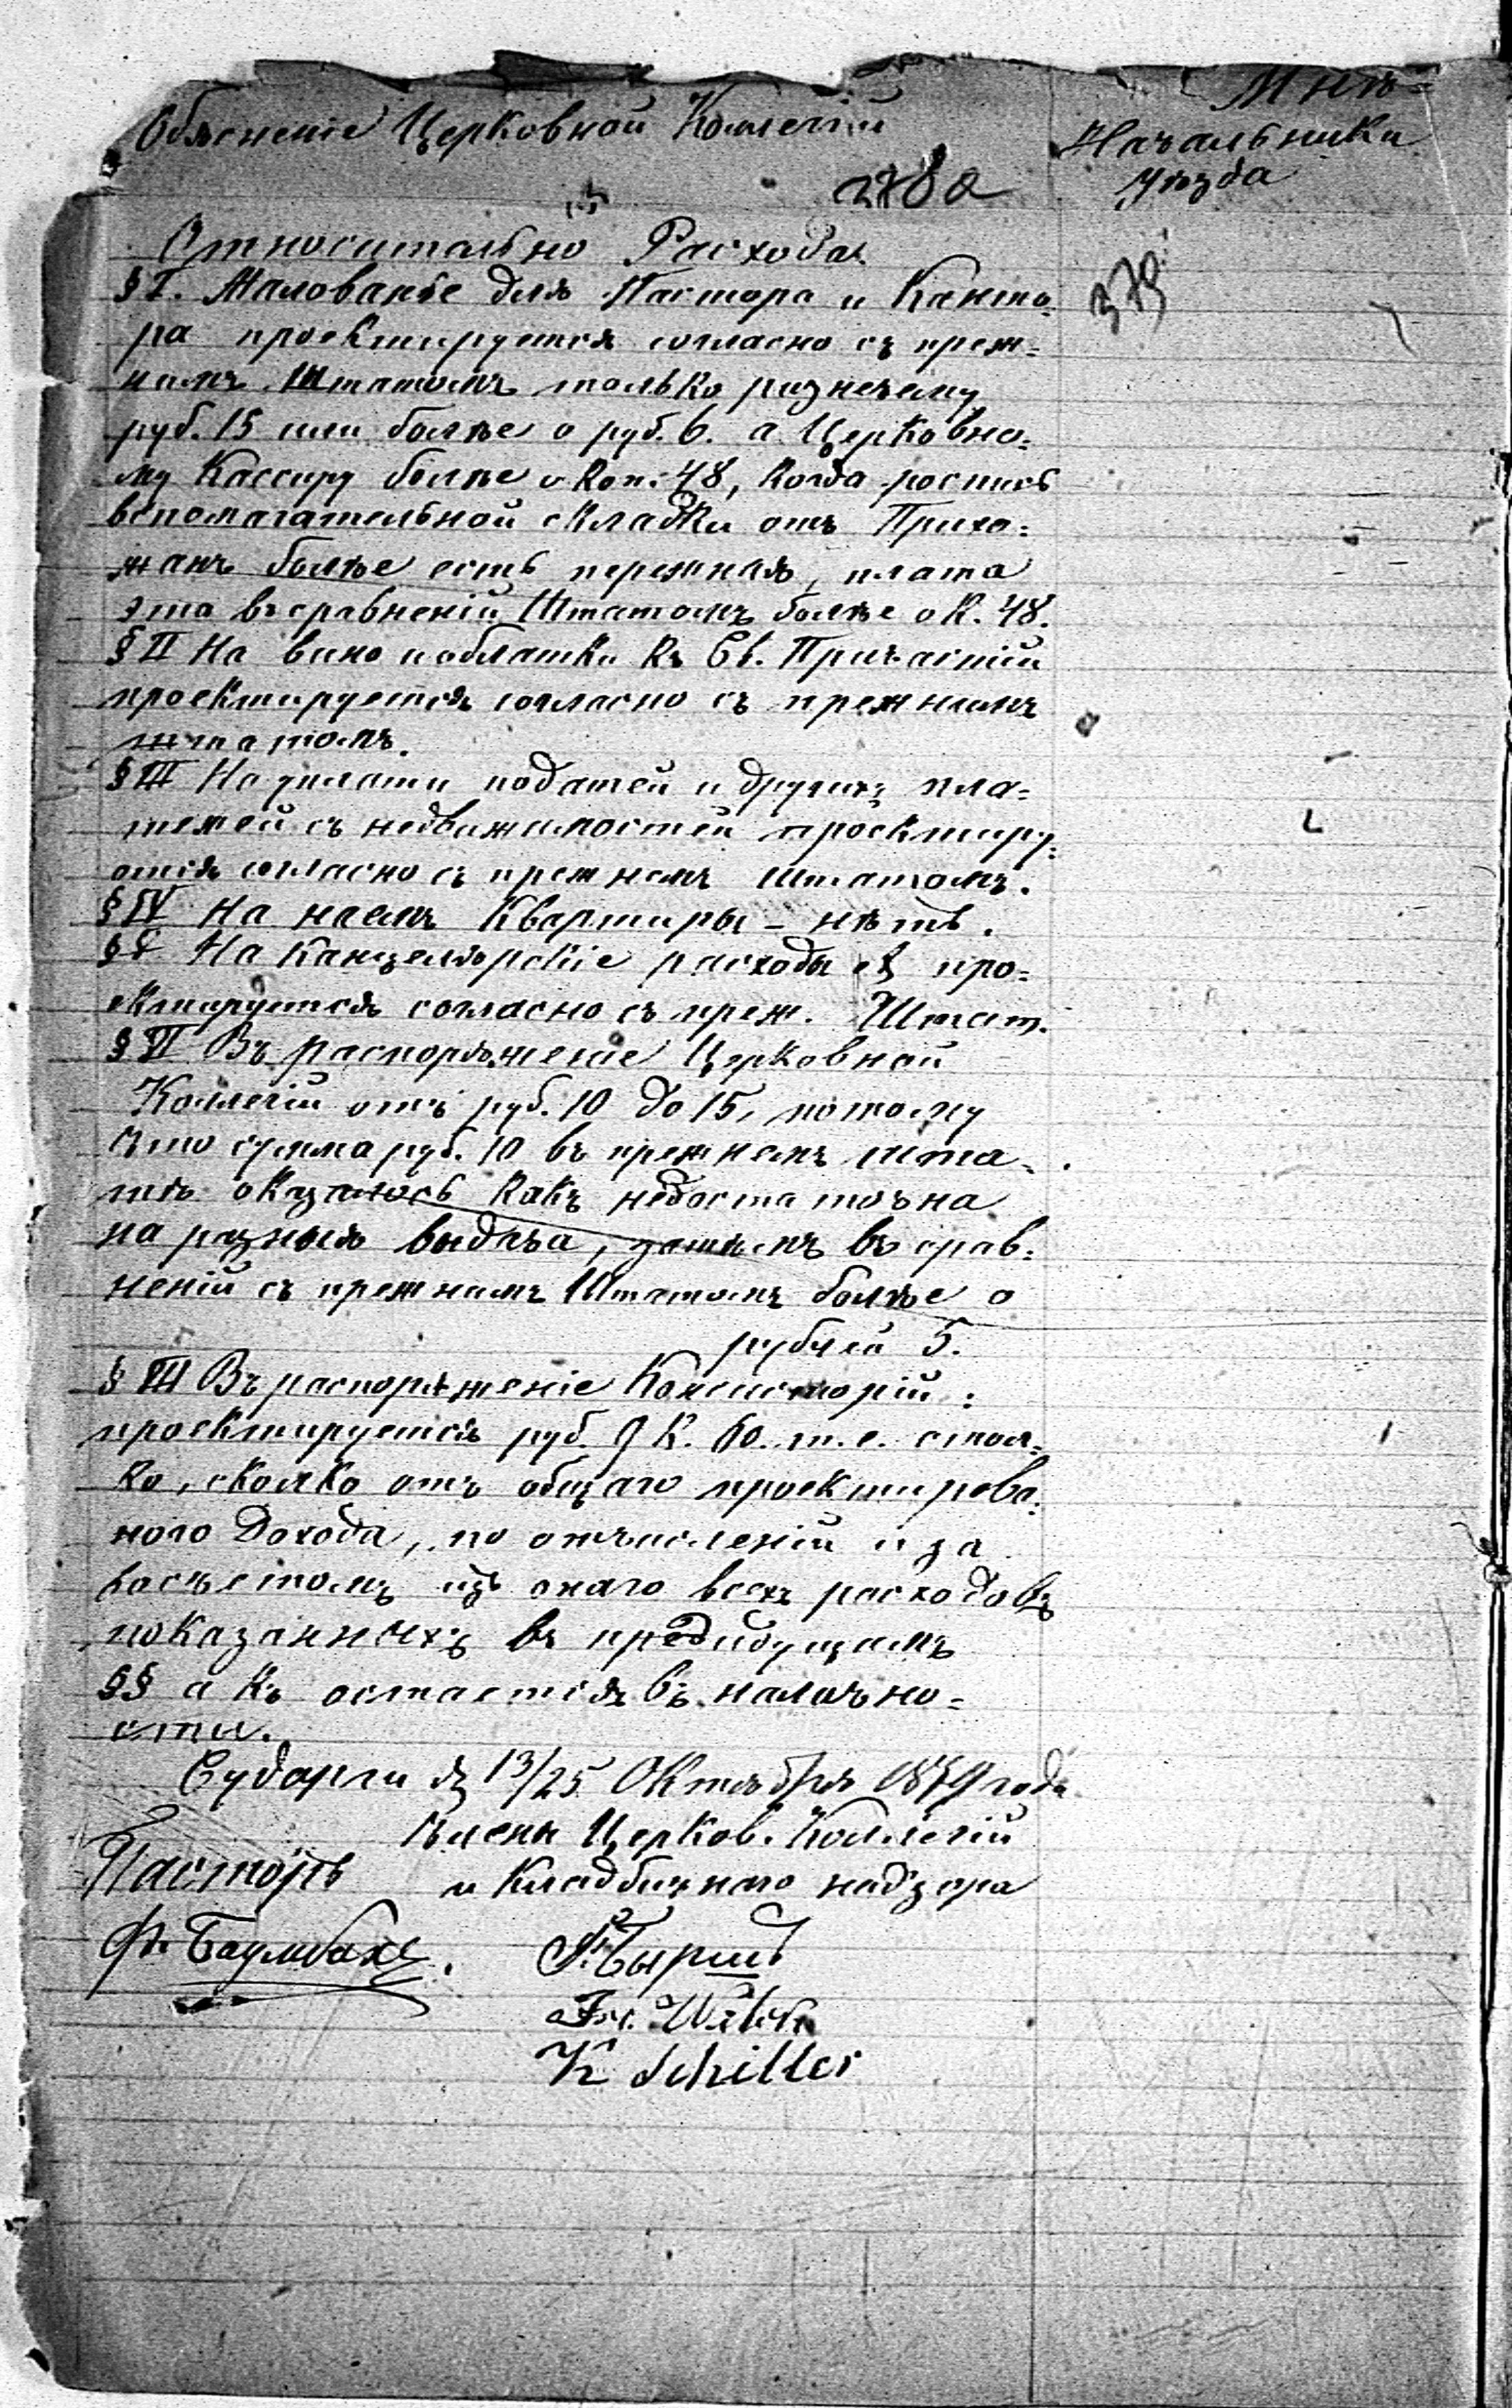 Мнѣ=
Объясненіе Церковной Коллегіи
Начальника
Уѣзда
278а
Относительно Расхода
379
§ I. Жалованье для Пастора и Канто=
ра проектируется согласно съ преж=
нимъ Штатомъ только
руб. 15 или болѣе о руб. 6. а Церковно=
му Кассиру болѣе о коп. 48, когда роспись
вспомагательной складки отъ Прихо=
жанъ болѣе есть, плата
эта въ сравненій Штатомъ болѣе о К. 48.
§ II На вино и облатки къ Св. Причастій
проектируется согласно съ прежнимъ
штатомъ.
§ III На уплати податей и другихъ пла=
тежей съ недвижимостей проектиру=
ется согласно съ прежнемъ штатомъ.
§ IV На наемъ Квартиры – нѣтъ.
§ V На Канцелярскіе расходы про=
ектируется согласно съ преж. Штат.
§ VI Въ распоряженіе Церковной
Коллегіи отъ руб. 10 до 15, потому
что сумма руб. 10 въ прежнемъ шта=
тѣ оказалось какъ недостаточна
на разныя выдачa, затѣмъ въ срав=
неній съ прежнимъ Штатомъ болѣе о
рублей 5.
§ VII Въ распоряженіе Консисторій:
проектируется руб. 9 К. 60. т. е. стол=
ко, сколко отъ общаго проектирова=
ного Дохода, по отчисленій и за
изъ онаго всехъ расходовъ
показанныхъ въ предидущимъ
§§ а къ остается въ налично=
сти.
Сударги д. 13/25 Октября 1879 года
Члены Церков. Коллегій
Пасторъ и Кладбищнаго надзора
Ф. Баумбахъ.
K Schiller